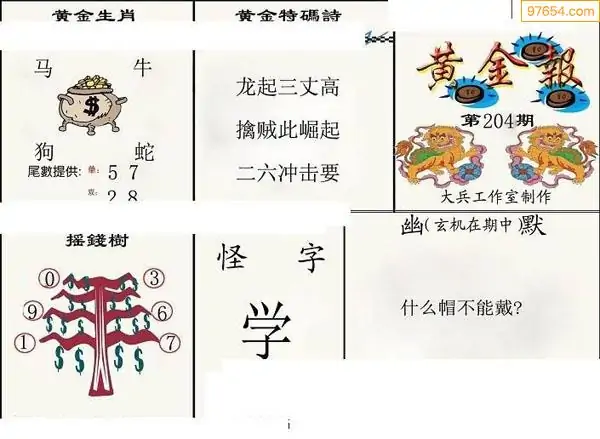 97654.com
黄金生肖
马 牛
狗 蛇
尾數提供: 单: 5 7
双: 2 8
黄金特碼詩
龙起三丈高
擒贼此崛起
二六冲击要
黄金報
第204期
大兵工作室制作
摇錢樹
0 3
9 6
1 7
怪 字
学
幽(玄机在期中)默
什么帽不能戴?
i